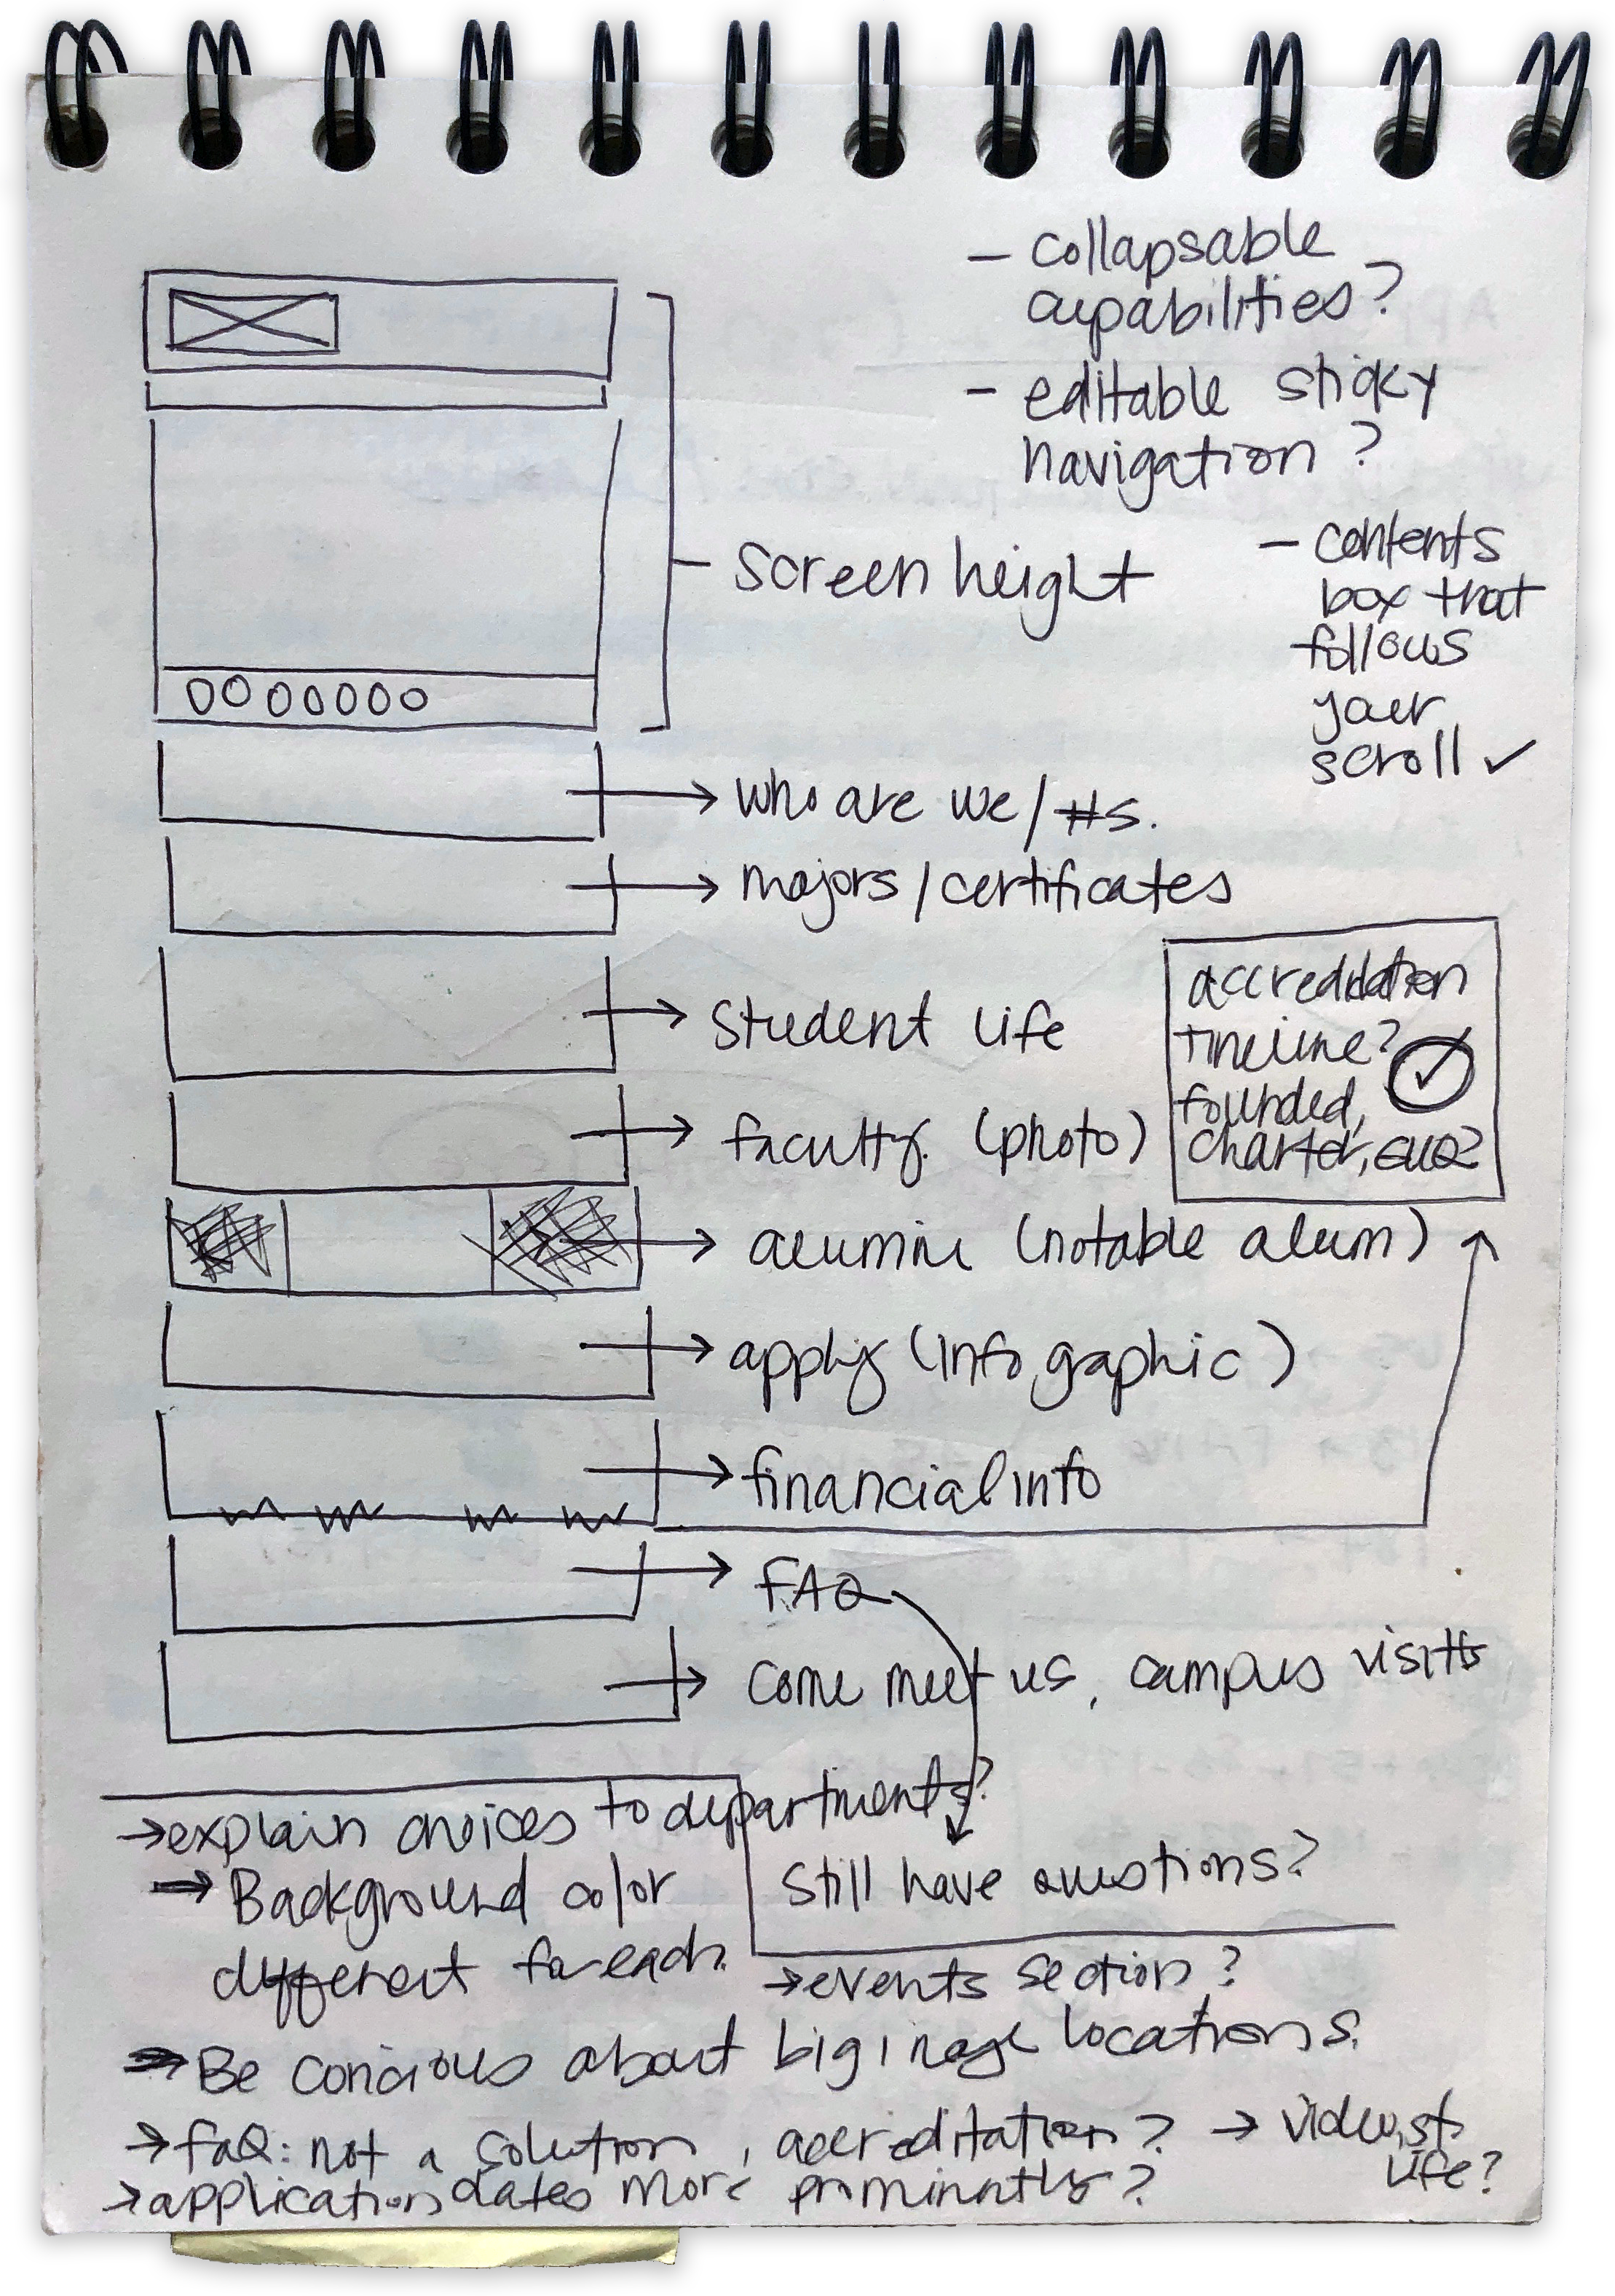 - collapsable
capabilities?
- editable sticky
navigation?
- contents
box that
follows
your
scroll ✓
screen height
who are we / #s.
majors / certificates
student life
accreditation
timeline?
founded,
charter,
faculty (photo)
alumni (notable alum)
apply (info graphic)
financial info
FAQ
come meet us, campus visits
→ explain choices to departments?
→ Background color
different for each.
Still have questions?
→ events section?
→ Be concious about big image locations.
→ FAQ: not a solution, accreditation? → video, st.
life?
→ application dates more prominntly?